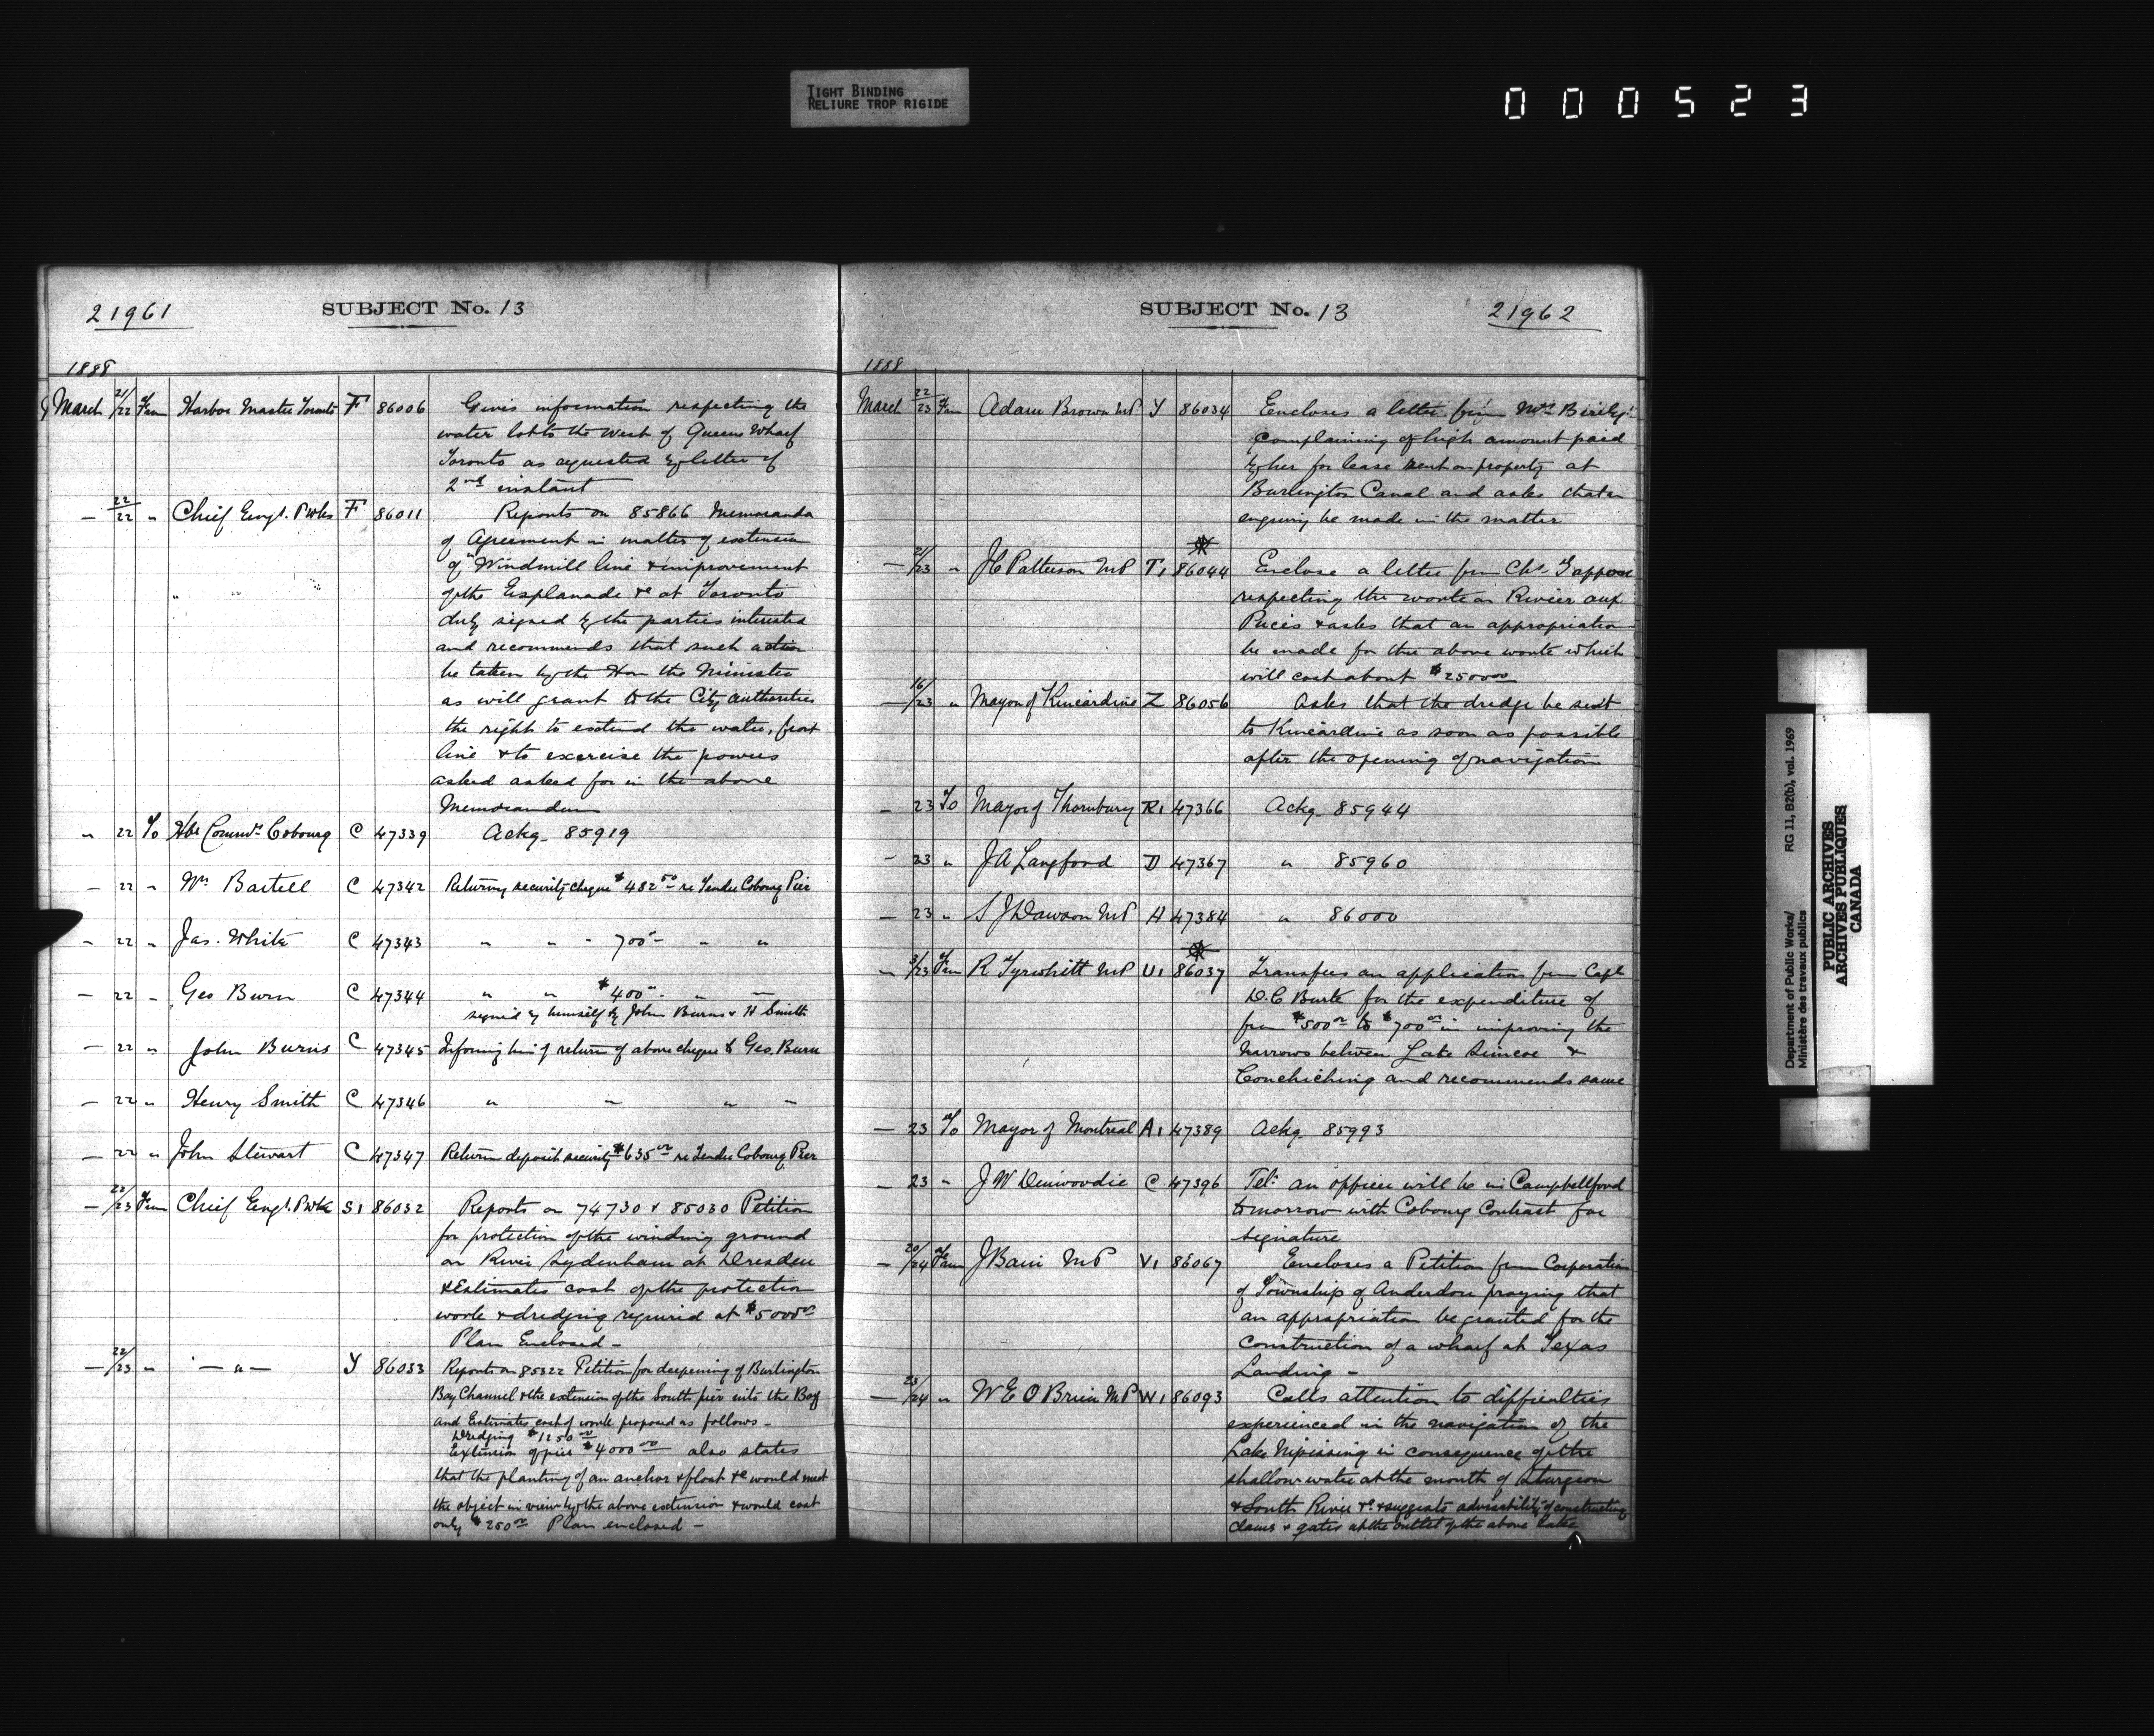 TIGHT BINDING
RELIURE TROP RIGIDE
000523
21961 SUBJECT No. 13
1888
March 21/22 Frm Harbor Master Toronto F 86006 Gives information respecting the
water lots to the West of Queens Wharf
Toronto as requested by letter of
2nd instant
— 22/22 " Chief Engr. P Wks F 86011 Reports on 85866 Memoranda
of Agreement in matter of extension
of "Windmill line & improvement
of the Esplanade &c at Toronto
duly signed by the parties interested
and recommends that such action
be taken by the Hon the Minister
as will grant to the City authorities
the right to extend the water, front
line & to exercise the powers
asked asked for in the above
Memorandum
" 22 To Hbr Commrs Cobourg C 47339 Ackg. 85919
— 22 " Wm Bartell C 47342 Returning security cheque $482 50 re Tender Cobourg Pier
— 22 " Jas. White C 47343 " " " 700 - " "
— 22 " Geo Burn C 47344 " " $400 - " —
signed by himself by John Burns & H Smith
— 22 " John Burns C 47345 Informing him of return of above cheque to Geo. Burn
— 22 " Henry Smith C 47346 " " " "
— 22 " John Stewart C 47347 Return deposit security $635 00 re Tender Cobourg Pier
— 22/23 Frm Chief Engr. P Wks S1 86032 Reports on 74730 & 85030 Petition
for protection of the winding ground
on River Sydenham at Dresden
& Estimates cost of the protection
work & dredging required at $5000 00
Plan Enclosed —
— 22/23 " — " — Y 86033 Reports on 85322 Petition for deepening of Burlington
Bay Channel & the extension of the South pier into the Bay
and Estimates cost of work proposed as follows —
Dredging $1250 00
Extension of pier $4000 00 also states
that the planting of an anchor & float &c would meet
the object in view by the above extension & would cost
only $250 00 Plan enclosed —
SUBJECT No. 13 21962
1888
March 22/23 Frm Adam Brown MP Y 86034 Encloses a letter from Mrs
complaining of high amount paid
by her for lease rent on property at
Burlington Canal and asks that an
enquiry be made in the matter
— 21/23 " J C Patterson MP T1 86044 Enclose a letter from Chs.
respecting the work on Rivier aux
Puces & asks that an appropriation
be made for the above work which
will cost about $2500 00
— 16/23 " Mayor of Kincardine Z 86056 Asks that the dredge be sent
to Kincardine as soon as possible
after the opening of navigation
— 23 To Mayor of Thornbury R1 47366 Ackg. 85944
— 23 " J A Langford D 47367 " 85960
— 23 " S J Dawson MP A 47384 " 86000
— 3/23 Frm R Tyrwhitt MP U1 86037 Transfers an application from Capt
D. C Burke for the expenditure of
from $500 00 to $700 00 in improving the
Narrows between Lake Simcoe &
Couchiching and recommends same
— 23 To Mayor of Montreal A1 47389 Ackg. 85993
— 23 " J W Dinwoodie C 47396 Tel: an officer will be in Campbellford
tomorrow with Cobourg Contract for
signature
— 20/24 Frm J Bain MP V1 86067 Encloses a Petition from Corporation
of Township of Anderdon praying that
an appropriation be granted for the
construction of a wharf at Texas
Landing —
— 23/24 " W E O Brien MP W1 86093 Calls attention to difficulties
experienced in the navigation of the
Lake Nipissing in consequence of the
shallow water at the mouth of Sturgeon
& South River &c & suggests advisability of constructing
dams & gates at the outlet of the above lake
Department of Public Works/ RG 11, B2(b), vol. 1969
Ministère des travaux publics
PUBLIC ARCHIVES
ARCHIVES PUBLIQUES
CANADA